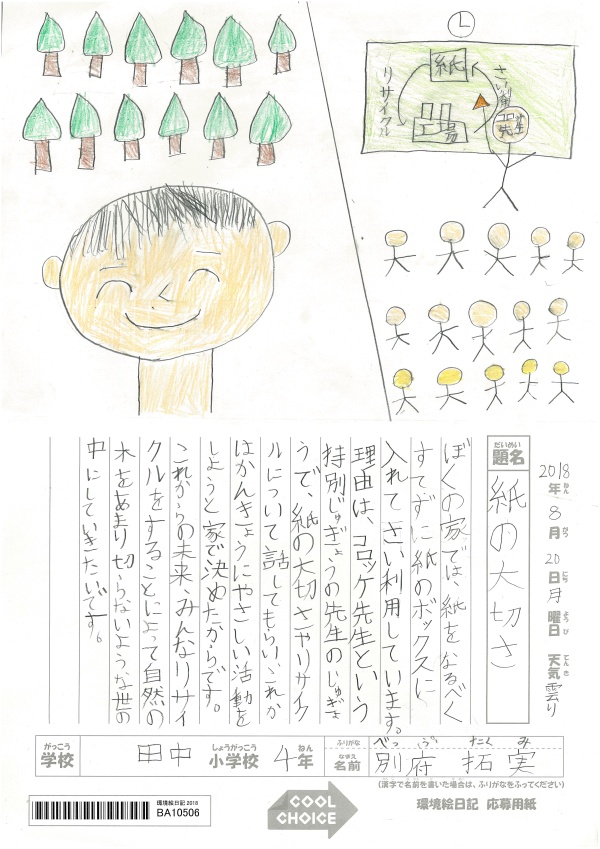 L
紙
リサイクル
さい利用
工場
コロッケ先生
2018年8月20日月曜日 天気 曇り
ねん がつ にち ようび てんき
だいめい
題名 紙の大切さ
ぼくの家では、紙をなるべく
すてずに紙のボックスに
入れてさい利用しています。
理由は、コロッケ先生という
特別じゅぎょうの先生のじゅぎょ
うで、紙の大切さやリサイク
ルについて話してもらい、これか
はかんきょうにやさしい活動を
しようと家で決めたからです。
これからの未来、みんなリサイ
クルをすることによって自然の
木をあまり切らないような世の
中にしていきたいです。
がっこう しょうがっこう ねん
学校 田中 小学校 4年
ふりがな べっぷ たくみ
なまえ
名前 別府 拓実
(漢字で名前を書いた場合は、ふりがなをふってください)
環境絵日記 2018
BA10506
COOL
CHOICE
環境絵日記 応募用紙